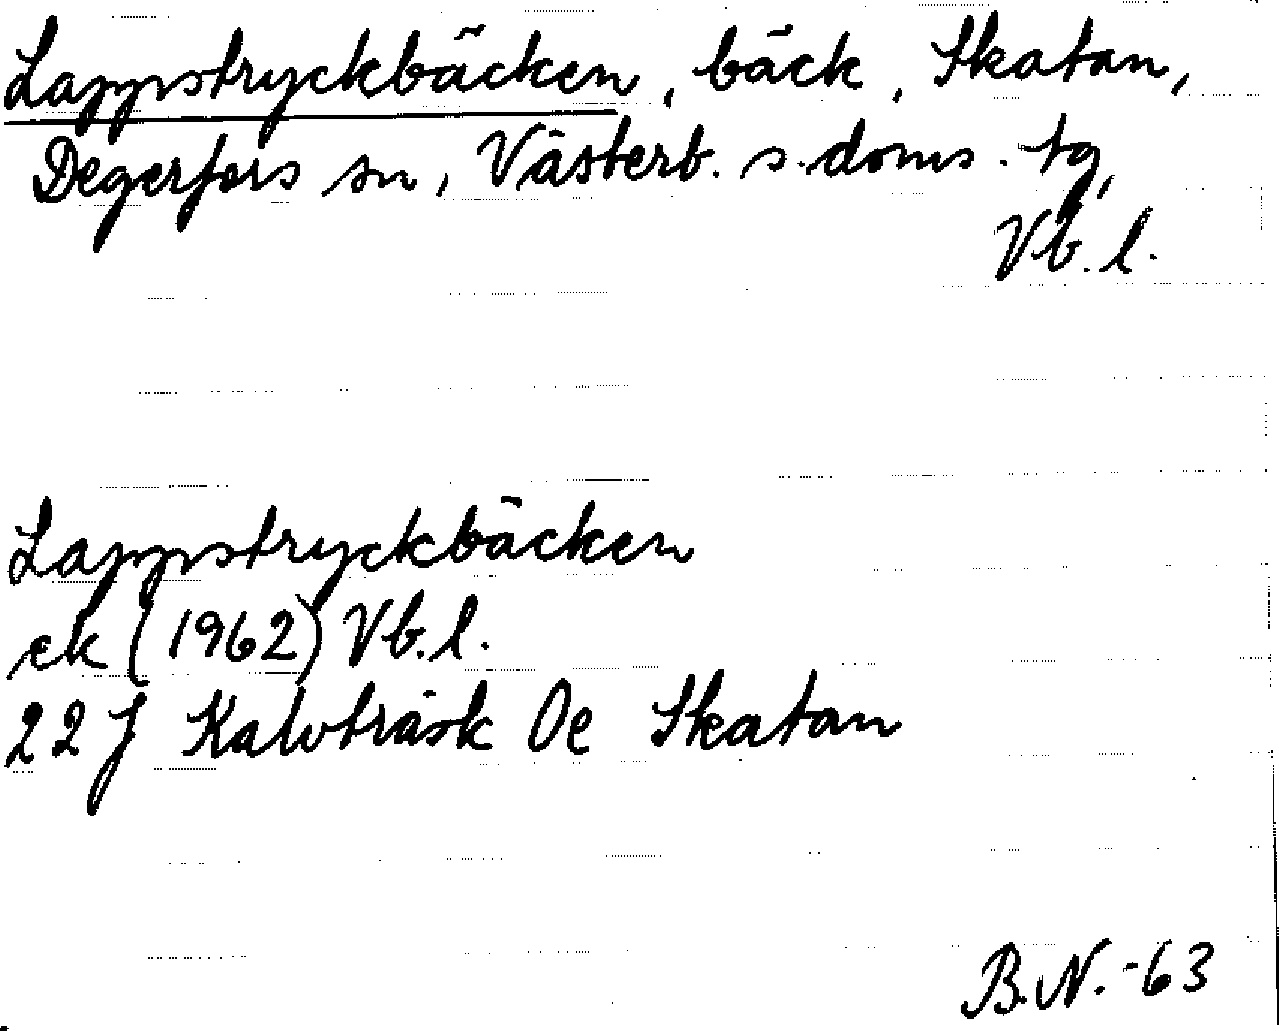 Lappstryckbäcken, bäck, Skatan,
Degerfors sn, Västerb. s. doms. tg,
Vb. l.
Lappstryckbäcken
ek (1962) Vb. l.
22 J Kalvträsk 0e Skatan
B.N. -63